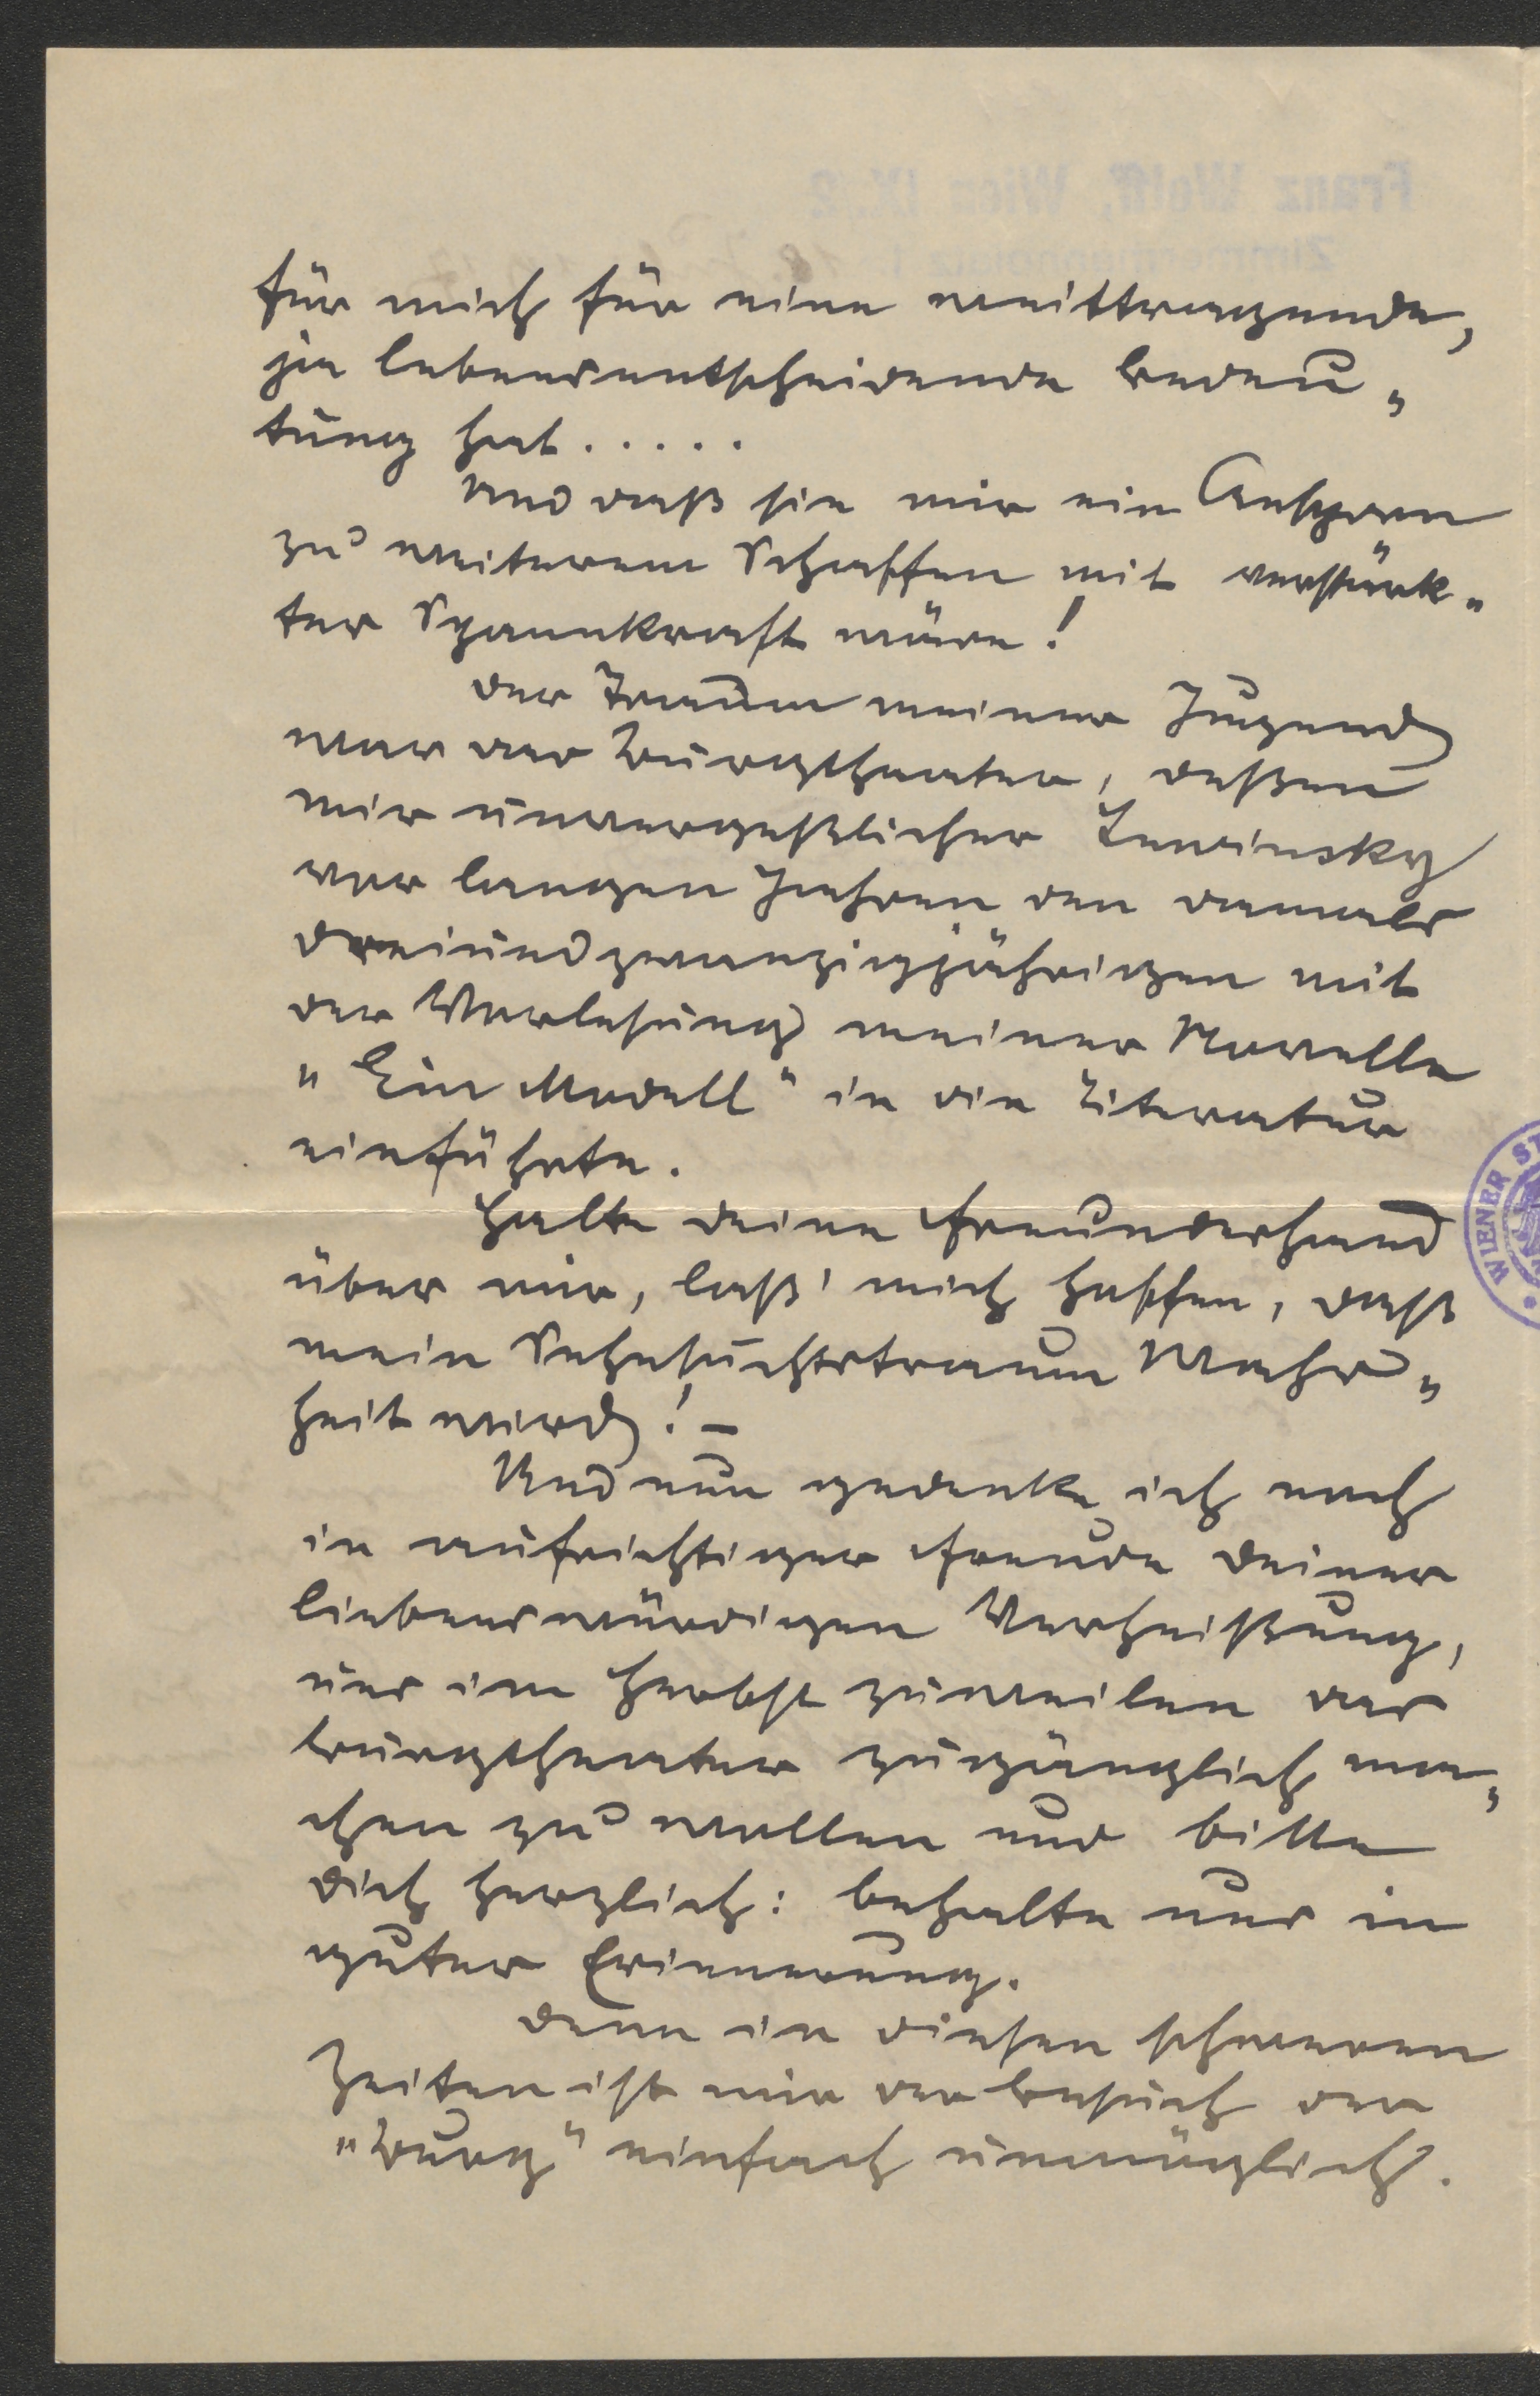 für mich für eine weittragende,
ja lebensentscheidende Bedeu„
tung hat.....
Und daß sie mir ein Ansporn
zu weiterem Schaffen mit verstärk„
ter Spannkraft wäre!
Der Traum meiner Jugend
war das Burgtheater, deßen
mir unvergeßlicher Lewinsky
vor langen Jahren den damals
dreiundzwanzigjährigen mit
der Vorlesung meiner Novelle
„Ein Modell" in die Literatur
einführte.
Halte deine Freundeshand
über mir, laß' mich hoffen, daß
mein Sehnsuchtstraum Wahr„
heit wird! –
Und nun gedenke ich noch
in aufrichtiger Freude deiner
liebenswürdigen Verheißung,
uns im Herbst zuweilen das
Burgtheater zugänglich ma„
chen zu wollen und bitte
dich herzlich: behalte uns in
guter Erinnerung.
Denn in diesen schweren
Zeiten ist mir der Besuch der
„Burg" einfach unmöglich.
WIENER ST